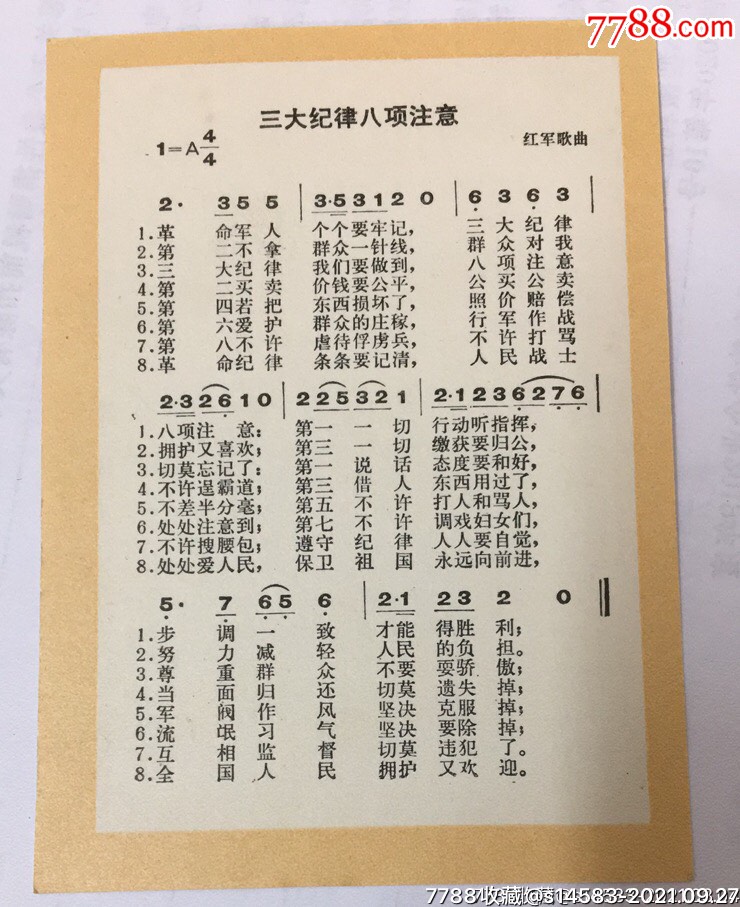 7788.com
三大纪律八项注意
1=A 4/4
红军歌曲
2· 3 5 5 3·5 3 1 2 0 6 3 6 3
1.革 命军人 个个要牢记, 三大纪律
2.第 二不拿 群众一针线, 群众对我
3.三 大纪律 我们要做到, 八项注意
4.第 二买卖 价钱要公平, 公买公卖
5.第 四若把 东西损坏了, 照价赔偿
6.第 六爱护 群众的庄稼, 行军作战
7.第 八不许 虐待俘虏兵, 不许打骂
8.革 命纪律 条条要记清, 人民战士
2·3 2 6 1 0 2 2 5 3 2 1 2·1 2 3 6 2 7 6
1.八项注 意: 第一一切 行动听指挥,
2.拥护又喜欢; 第三一切 缴获要归公,
3.切莫忘记了: 第一说话 态度要和好,
4.不许逞霸道; 第三借人 东西用过了,
5.不差半分毫; 第五不许 打人和骂人,
6.处处注意到; 第七不许 调戏妇女们,
7.不许搜腰包; 遵守纪律 人人要自觉,
8.处处爱人民, 保卫祖国 永远要向前进,
5· 7 6 5 6 2·1 2 3 2 0
1.步 调一致 才能得胜利;
2.努 力减轻 人民的负担。
3.尊 重群众 不要耍骄傲;
4.当 面归还 切莫遗失掉;
5.军 阀作风 坚决克服掉;
6.流 氓习气 坚决要除掉;
7.互 相监督 切莫违犯了。
8.全 国人民 拥护又欢迎。
7788收藏@s14583-2021.09.27